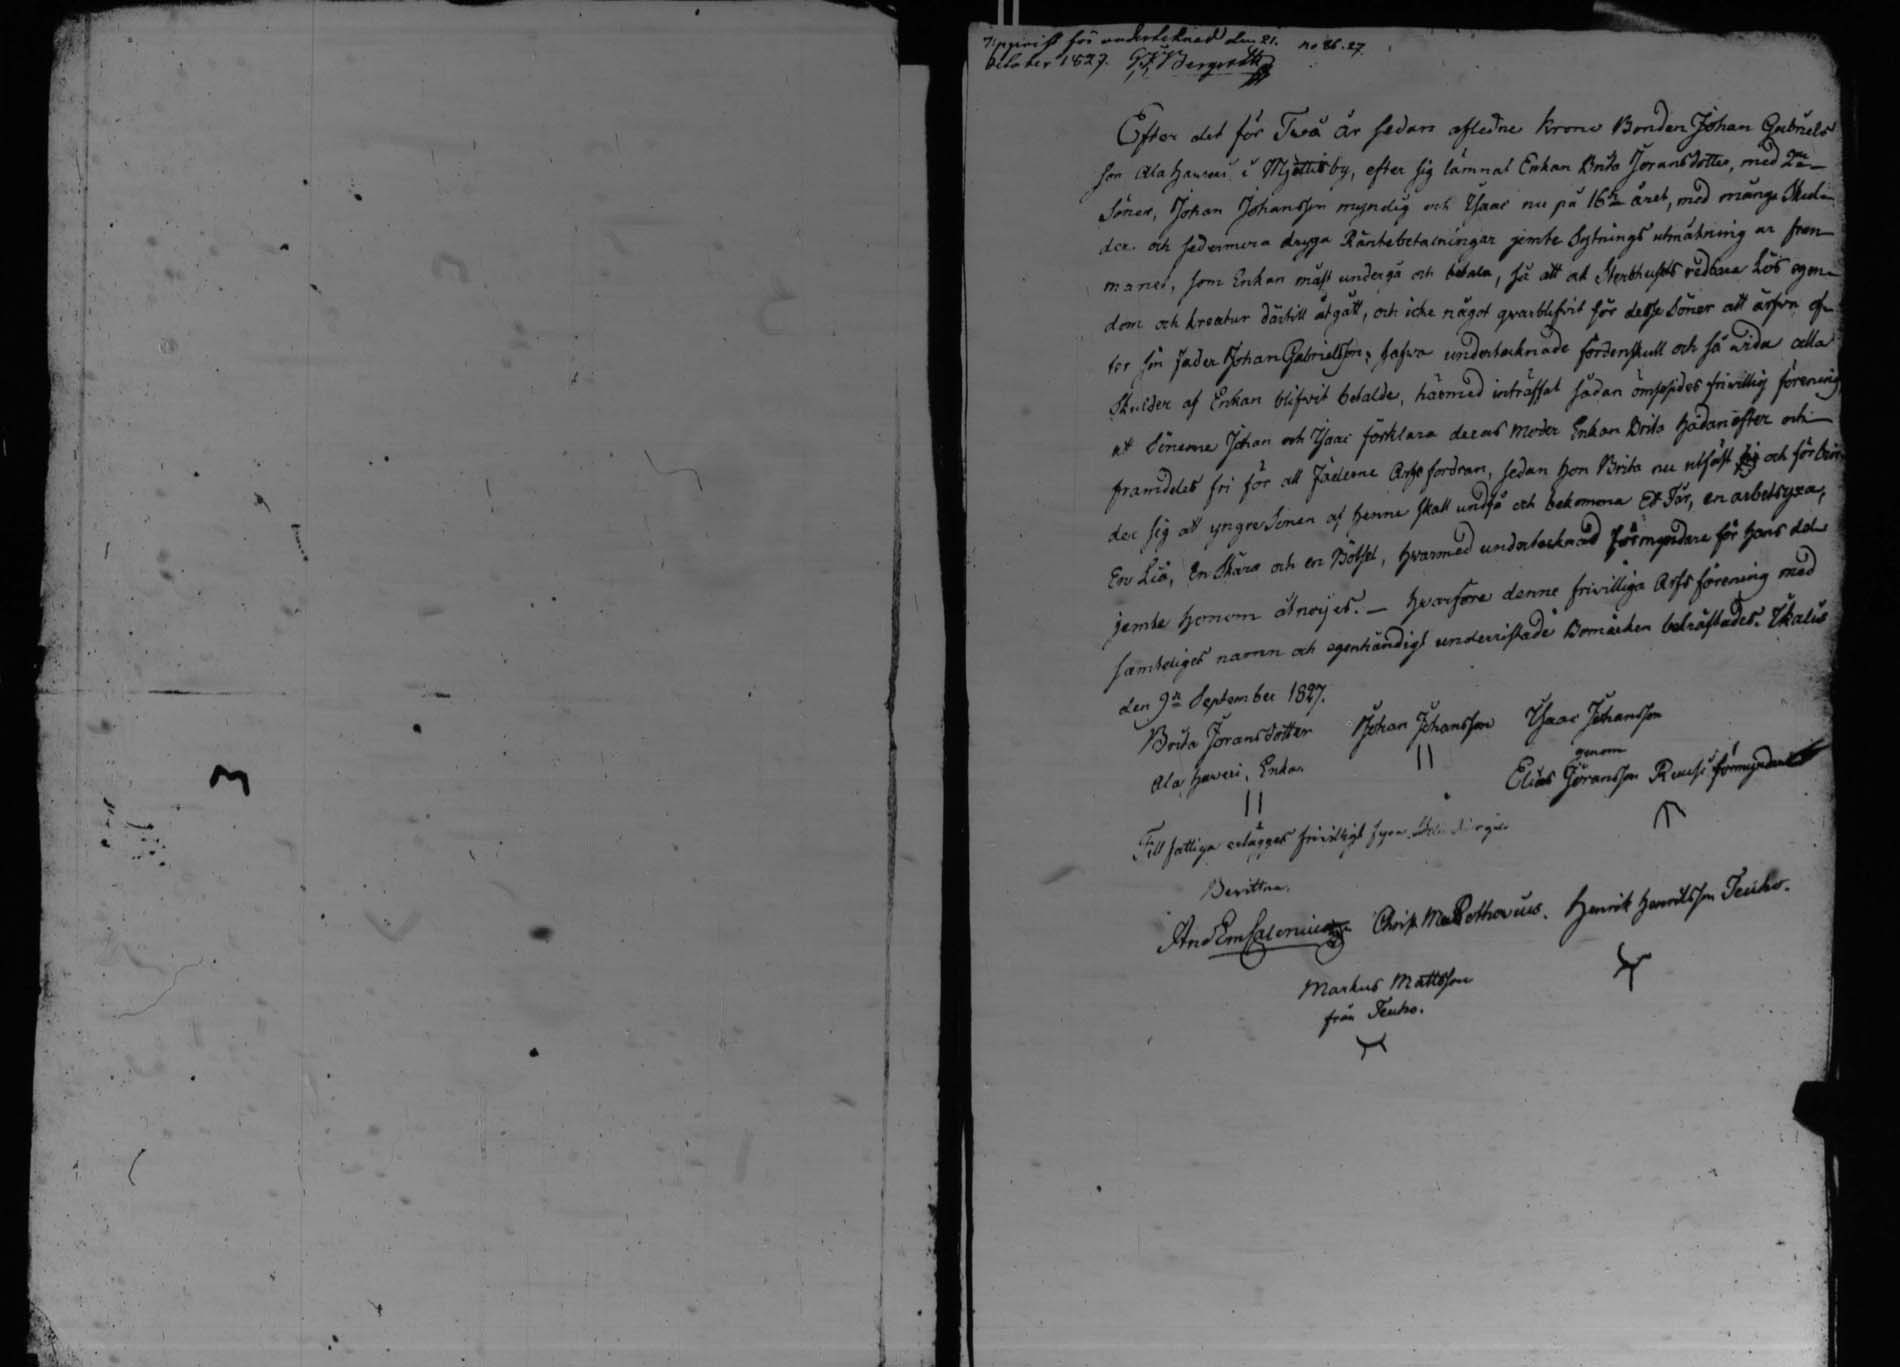 Uppvist för undertecknad den 21. no 26.27.
October 1827. Bergroth
Efter det för Två år sedan aflidne krono Bonden Johan Gabriels-
son Alahaweri i by, efter sig lämnat Enkan Brita Jöransdotter, med 2ne
Söner, Johan Johansson myndig och Isaac nu på 16de året, med många Skul-
der och sedermera dryga Räntebetalningar jemte Sytnings utmätning av frem-
maner, som Enkan måst undergå och betala, så att all Sterbhusets redbara Lös egen-
dom och kreatur därtill åtgått, och icke något qvarblifvit för desse Söner att ärfva ef-
ter sin fader Johan Gabrielsson; hafva undertecknade fördenskull och så vida alla
Skulder af Enkan blifvit betalde, härmed inträffat sådan ömsesides frivillig förening,
at Sönerne Johan och Isaac förklara deras moder Enkan Brita hädanefter och
framdeles fri för all Fäderne Arfs fordran, sedan hon Brita nu utfäst sig och förbin-
der sig att yngre Sonen af henne skall undfå och bekomma Et Får, en arbetsyxa,
En Lia, En Skära och en Bötsel, hvarmed undertecknad förmyndare för hans del
jemte honom åtnöjes. — Hvarföre denne frivilliga Arfs förening med
samteliges namn och egenhändigt underristade Bomärken bekräftades. Ikalis
den 9de September 1827.
Brita Jöransdotter Johan Johansson Isaac Johansson
Alahaweri, Enka. genom
Elias Göransson förmyndare
Till fattiga erlägges frivilligt fyra
Bevittna.
And Em Salenius Christ. Henrik Henriksson Teuho.
Markus Mattsson
från Teuho.